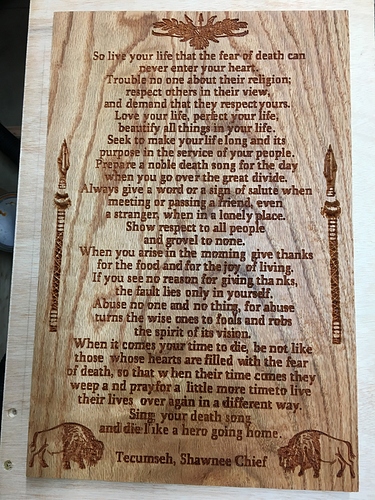 So live your life that the fear of death can
never enter your heart.
Trouble no one about their religion;
respect others in their view,
and demand that they respect yours.
Love your life, perfect your life,
beautify all things in your life.
Seek to make your life long and its
purpose in the service of your people.
Prepare a noble death song for the day
when you go over the great divide.
Always give a word or a sign of salute when
meeting or passing a friend, even
a stranger, when in a lonely place.
Show respect to all people
and grovel to none.
When you arise in the morning give thanks
for the food and for the joy of living.
If you see no reason for giving thanks,
the fault lies only in yourself.
Abuse no one and no thing, for abuse
turns the wise ones to fools and robs
the spirit of its vision.
When it comes your time to die, be not like
those whose hearts are filled with the fear
of death, so that w hen their time comes they
weep a nd pray for a little more time to live
their lives over again in a different way.
Sing your death song
and die like a hero going home.
Tecumseh, Shawnee Chief